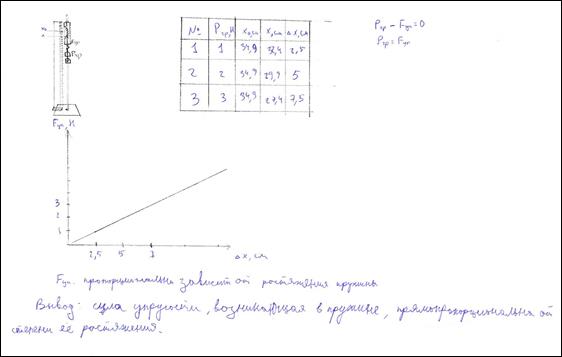 Fуп
Pгр
№ Pгр,Н x₀,см x,см Δx,см
1 1 34,9 32,4 2,5
2 2 34,9 29,9 5
3 3 34,9 27,4 7,5
Pгр - Fуп = 0
Pгр = Fуп
Fуп, Н
3
2
1
2,5 5 3 Δx, см
Fуп. пропорционально зависит от растяжения пружины
Вывод: сила упругости, возникающая в пружине, прямопропорциональна от
степени её растяжения.